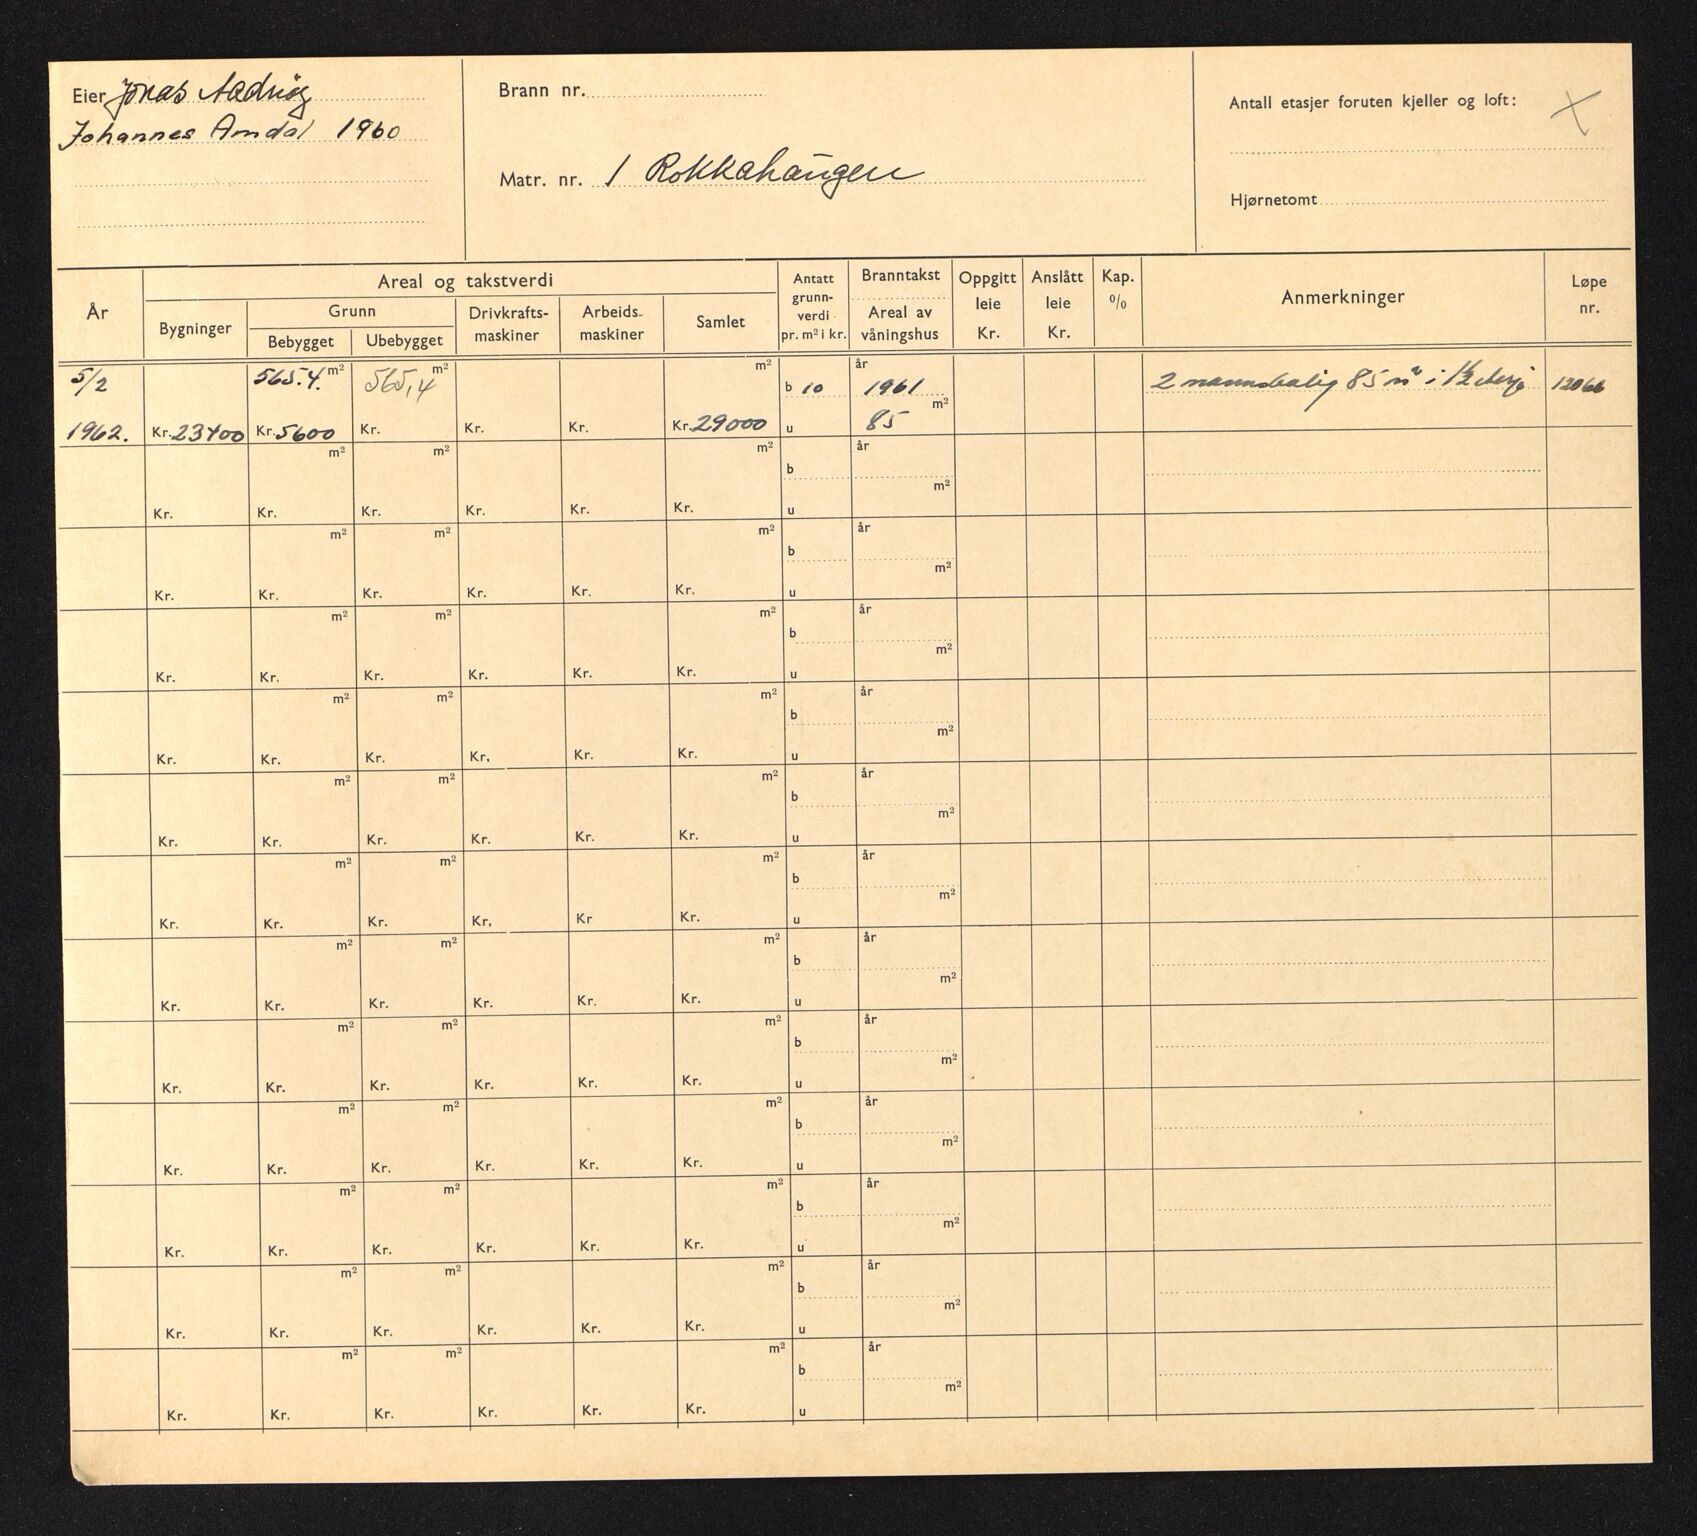 Eier Jonas Aadnøy
Johannes Amdal 1960
Brann nr.
Matr. nr. 1 Rokkahaugen
Antall etasjer foruten kjeller og loft: X
Hjørnetomt
År
Areal og takstverdi
Bygninger
Grunn
Bebygget Ubebygget
Drivkrafts-
maskiner
Arbeids-
maskiner
Samlet
Antatt
grunn-
verdi
pr. m² i kr.
Branntakst
Areal av
våningshus
Oppgitt
leie
Kr.
Anslått
leie
Kr.
Kap.
%
Anmerkninger
Løpe
nr.
5/2 565.4. m² 565,4 m² m² b 10 år 1961 2 mannsbolig 85 m² i 1½ etasje 12066
1962. Kr. 23400 Kr. 5600 Kr. Kr. Kr. Kr. 29000 u 85 m²
m² m² m² b år
Kr. Kr. Kr. Kr. Kr. Kr. u m²
m² m² m² b år
Kr. Kr. Kr. Kr. Kr. Kr. u m²
m² m² m² b år
Kr. Kr. Kr. Kr. Kr. Kr. u m²
m² m² m² b år
Kr. Kr. Kr. Kr. Kr. Kr. u m²
m² m² m² b år
Kr. Kr. Kr. Kr. Kr. Kr. u m²
m² m² m² b år
Kr. Kr. Kr. Kr. Kr Kr. u m²
m² m² m² b år
Kr. Kr. Kr. Kr. Kr. Kr. u m²
m² m² m² b år
Kr. Kr. Kr. Kr. Kr. Kr. u m²
m² m² m² b år
Kr. Kr. Kr. Kr. Kr. Kr. u m²
m² m² m² b år
Kr. Kr. Kr. Kr. Kr. Kr. u m²
m² m² m² b år
Kr. Kr. Kr. Kr. Kr. Kr. u m²
m² m² m² b år
Kr. Kr. Kr. Kr. Kr. Kr. u m²